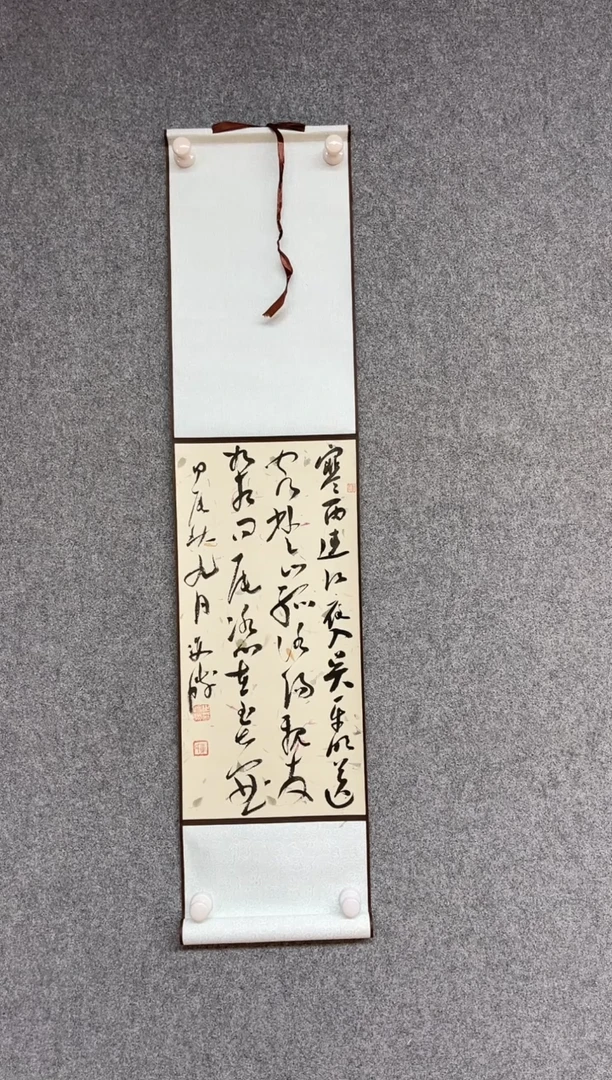 寒雨連江夜入吴平明送
客楚山孤洛陽親友
如相问一片冰心在玉壶
甲辰秋九月